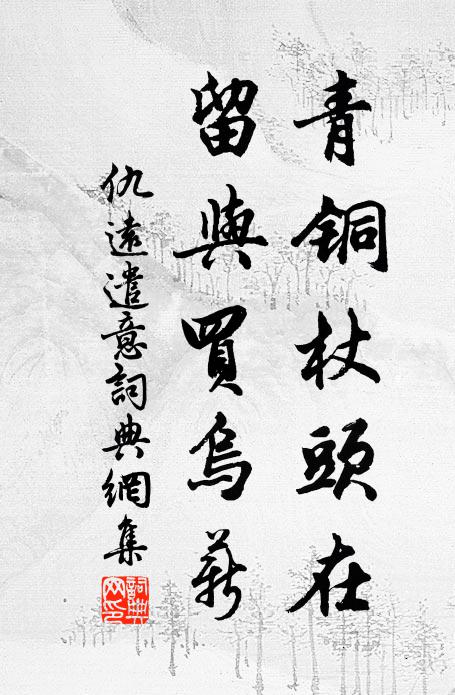 青銅杖頭在
留與買烏薪
仇遠遣意詞典網集